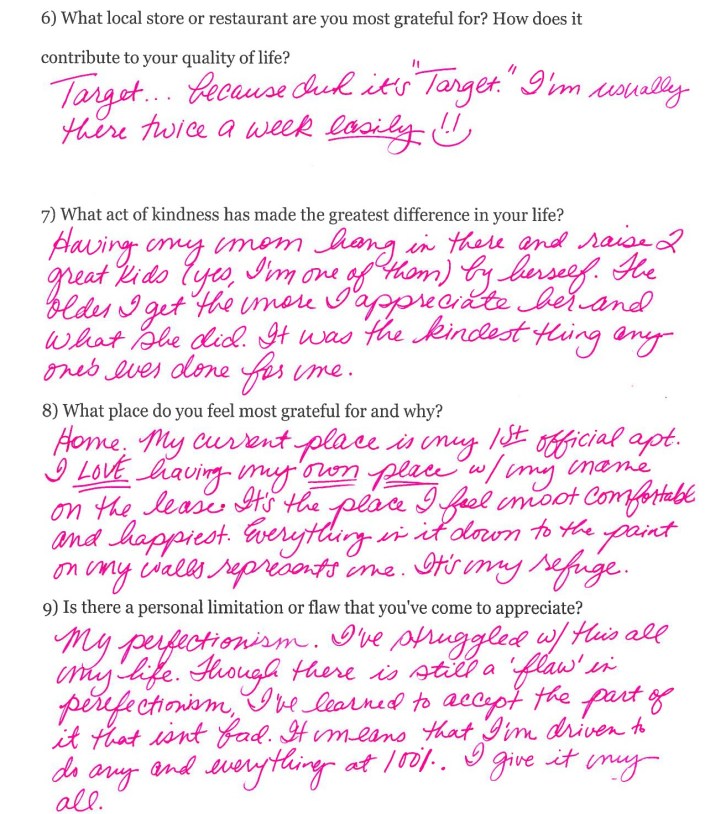 6) What local store or restaurant are you most grateful for? How does it
contribute to your quality of life?
Target... because duh it's "Target." I'm usually
there twice a week easily !!
7) What act of kindness has made the greatest difference in your life?
Having my mom hang in there and raise 2
great kids (yes, I'm one of them) by herself. The
older I get the more I appreciate her and
what she did. It was the kindest thing any-
one's ever done for me.
8) What place do you feel most grateful for and why?
Home. My current place is my 1st official apt.
I LOVE having my own place w/ my name
on the lease. It's the place I feel most comfortable
and happiest. Everything in it down to the paint
on my walls represents me. It's my refuge.
9) Is there a personal limitation or flaw that you've come to appreciate?
My perfectionism. I've struggled w/ this all
my life. Though there is still a 'flaw' in
perefectionism, I've learned to accept the part of
it that isnt bad. It means that I'm driven to
do any and everything at 100%. I give it my
all.